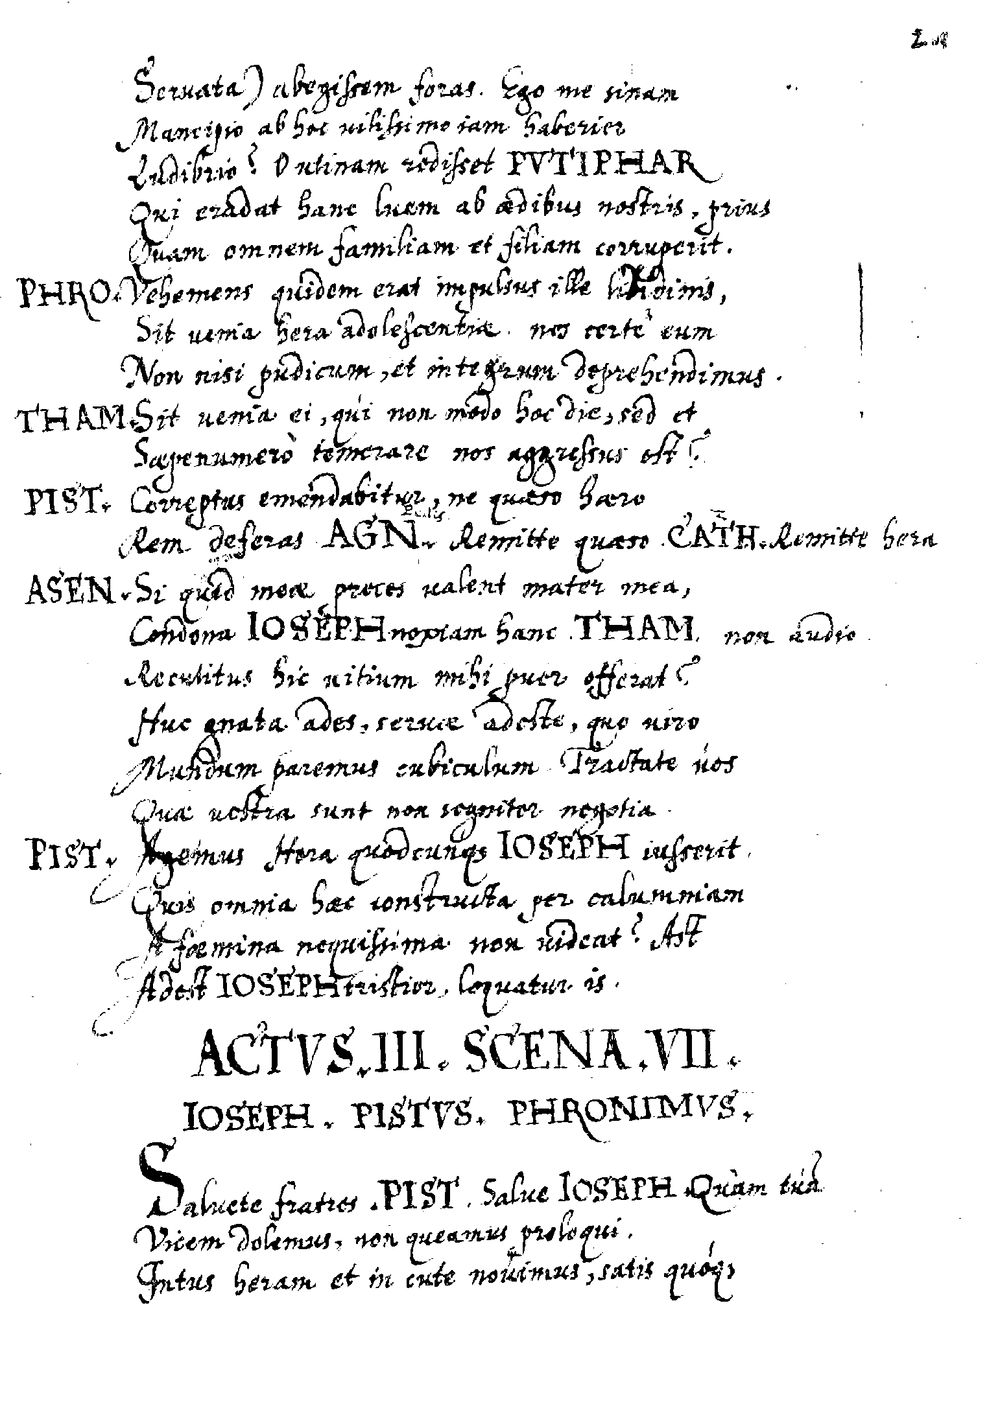 Seruata) abegissem foras. Ego me sinam
Mancipio ab hoc uilissimo iam haberier
Ludibrio? O utinam redisset PVTIPHAR
Qui eradat hanc luem ab ædibus nostris, prius
Quam omnem familiam et filiam corruperit.
PHRO. Vehemens quidem erat impulsus ille libidinis,
Sit uenia hera adolescentiæ. nos certe eum
Non nisi pudicum, et integrum deprehendimus.
THAM. Sit uenia ei, qui non modo hoc die, sed et
Sæpenumerò temerare nos aggressus est?
PIST. Correptus emendabitur, ne quæso hæro
Rem deferas AGN. Remitte quæso CATH. Remitte hera
ASEN. Si quid meæ preces ualent mater mea,
Condona IOSEPH noxiam hanc. THAM. non audio.
Recutitus hic uitium mihi puer offerat?
Huc gnata ades, seruæ adeste, quo uiro
Mundum paremus cubiculum. Tractate uos
Quæ uestra sunt non segniter negotia.
PIST. Agemus Hera quodcunq; IOSEPH iusserit.
Quis omnia hæc constructa per calumniam
A fœmina nequissima non uideat? Ast
Adest IOSEPH tristior, loquatur is.
ACTVS.III. SCENA.VII.
IOSEPH. PISTVS. PHRONIMVS.
Saluete fratres. PIST. Salue IOSEPH. Quàm tuã
Vicem dolemus, non queamus proloqui.
Intus heram et in cute nouimus, satis quóq;